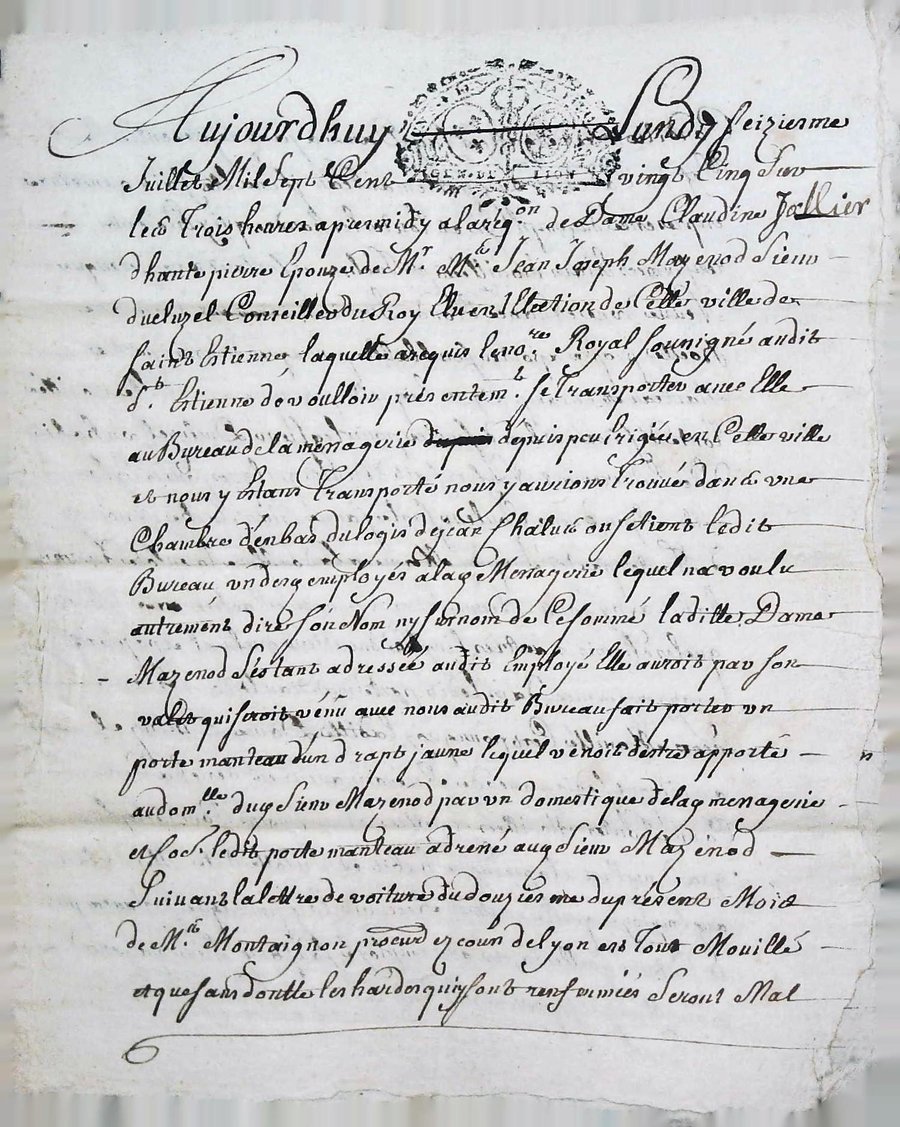 Aujourdhuy Lundy seizieme
GEN. DE LION
Juillet Mil Sept Cent vingt Cinq Sur
les Trois heures apresmidy a la req.on de Dame Claudine Jallier
dhaute pierre Epouze de Mr. Me. Jean Joseph Mazenod Sieur
du cluzel Conseiller du Roy Elu en lElection de Cette ville de
saint Estienne laquelle a requis le no.re Royal sousigné audit
St. Estienne de voulloir presentemt. se transporter avec Elle
au Bureau de la menagerie depuis peu Erigée en Cette ville
et nous y Estans transporté nous y aurions trouvé dans une
Chambre d'enbas du logis de jean Chaluis ou se tient ledit
Bureau un desq employés a lad Menagerie lequel n'a voulu
autrement dire son Nom ny surnom de Ce sommé laditte Dame
Mazenod s'estant adressée audit Employé Elle auroit par son
valet qui seroit venu avec nous audit Bureau fait porter un
porte manteau d'un drapt jaune lequel venoit destre apporté
au domlle. dud Sieur Mazenod par un domestique de lad menagerie
et ledit porte manteau adrené aud Sieur Mazenod
Suivant la lettre de voiture du douziesme du present Mois
de Mr. Montaignon procur ez cour de lyon est Tout Mouillé
et que sans doutte les hardes qui y sont renfermées seront Mal